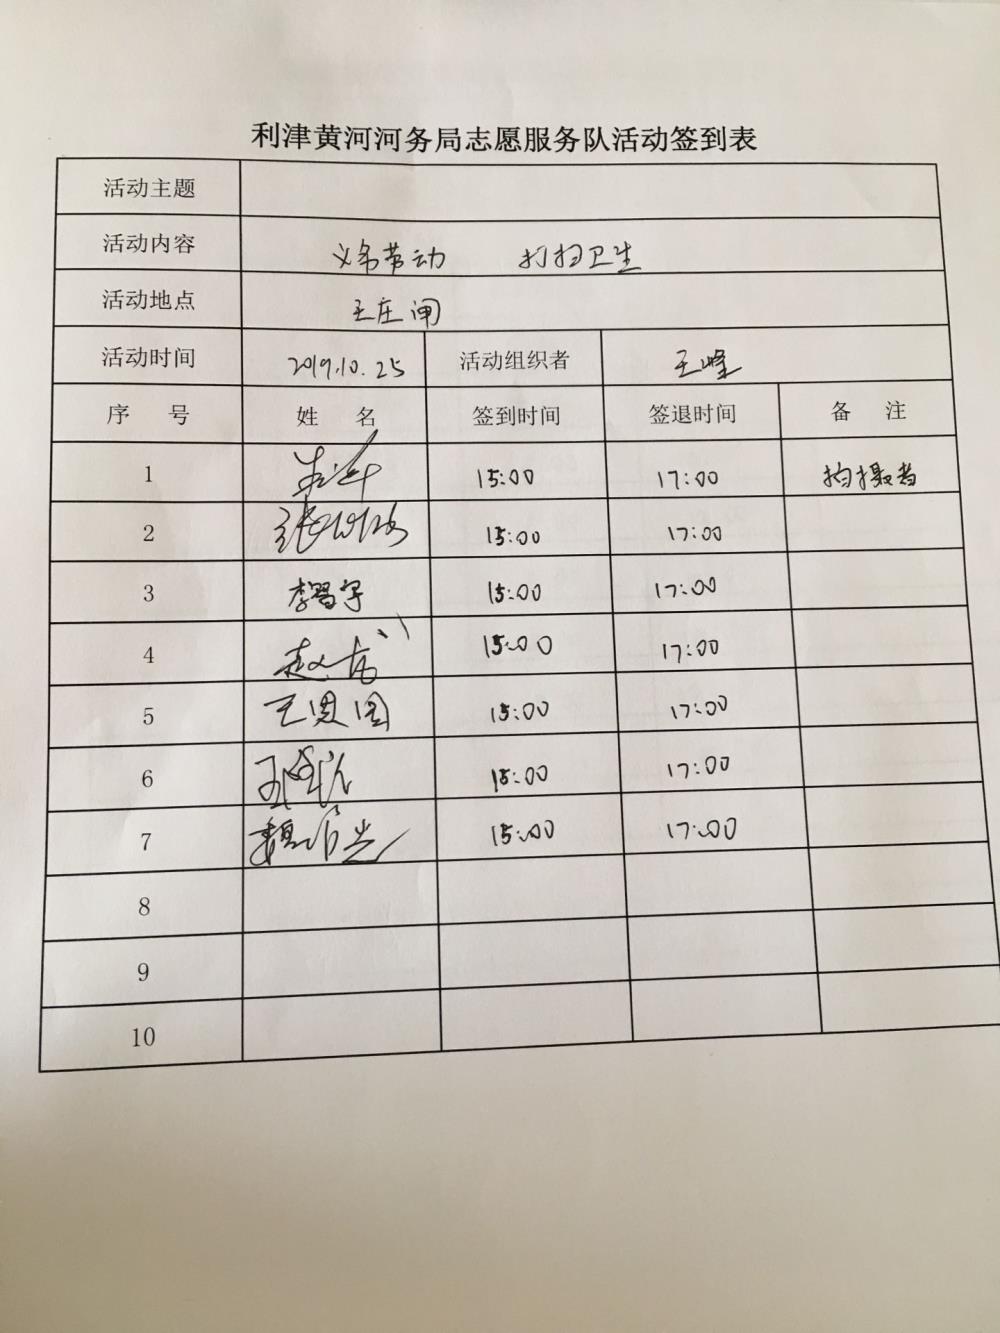 利津黄河河务局志愿服务队活动签到表
活动主题
活动内容 义务劳动 打扫卫生
活动地点 王庄闸
活动时间 2019.10.25 活动组织者 王峰
序 号 姓 名 签到时间 签退时间 备 注
1 15:00 17:00 拍摄者
2 15:00 17:00
3 李智宇 15:00 17:00
4 15:00 17:00
5 王恩国 15:00 17:00
6 15:00 17:00
7 15:00 17:00
8
9
10